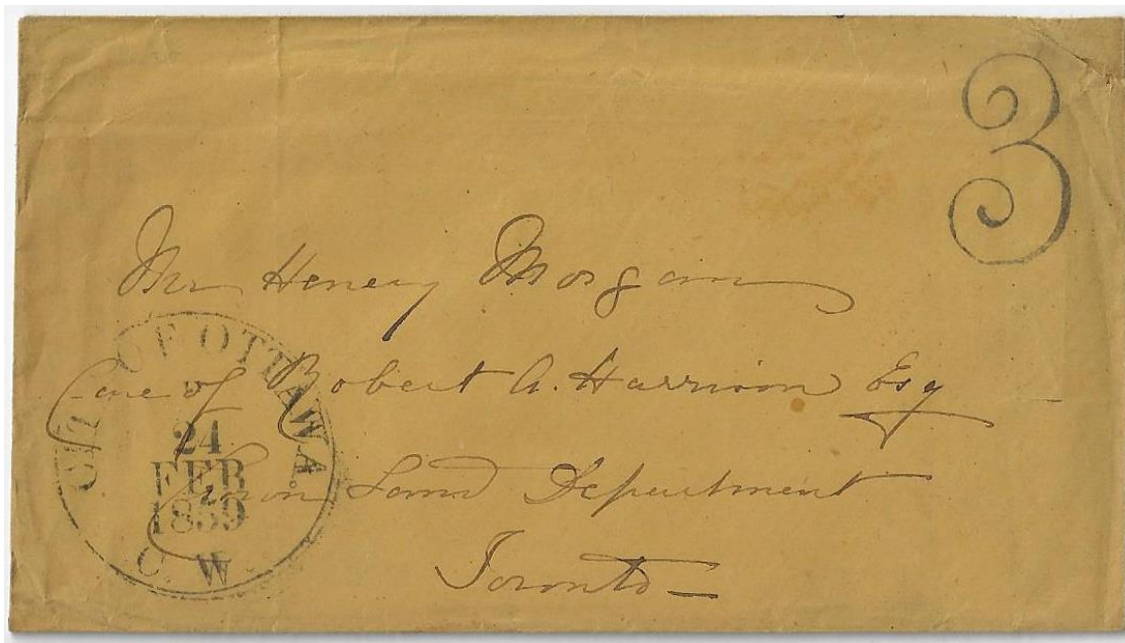 3
Mr Henery Morgan
Care of Robert A. Harrison Esq
Crown Land Department
Toronto
CITY OF OTTAWA.
24
FEB
1859
C. W.